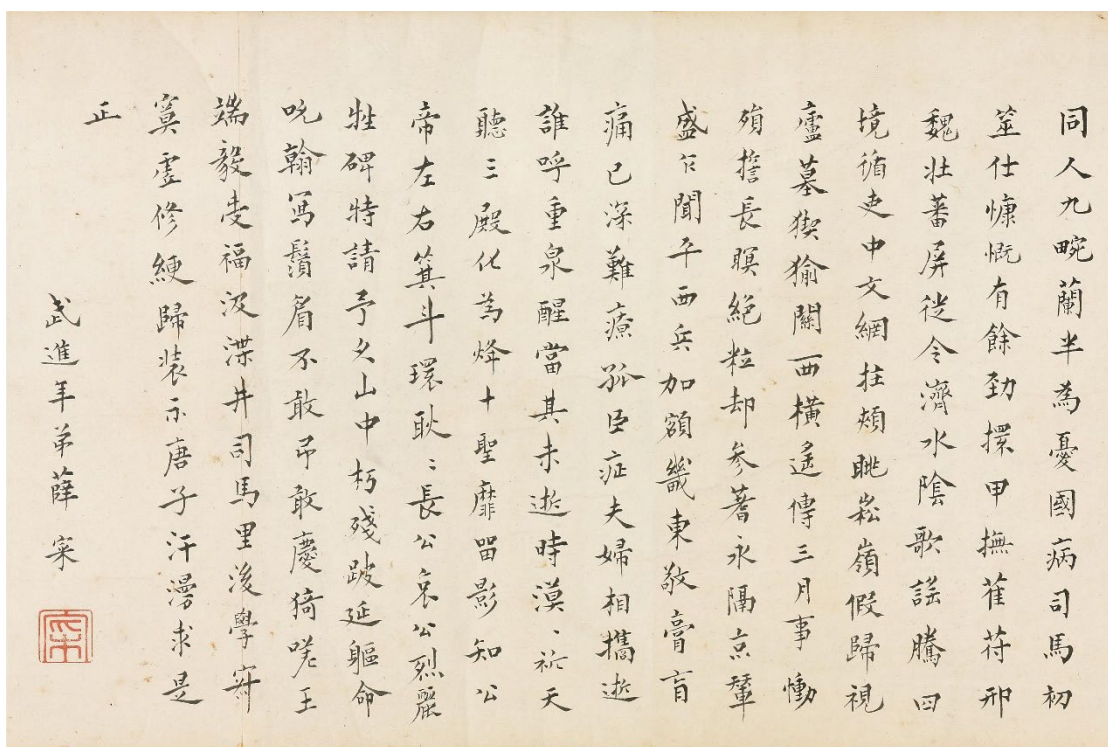 同人九畹蘭半為憂國病司馬初
筮仕慷慨有餘勁擐甲撫萑苻邢
魏壯蕃屏從令濟水陰歌謠騰四
境循吏中文網拄頰眺崧嶺假歸視
廬墓猰㺄關西橫遙傳三月事慟
殞擔長瞑絕粒却參蓍永隔京輦
盛乍聞平西兵加額畿東敬膏肓
痛已深難療孤臣症夫婦相攜逝
誰呼重泉醒當其未逝時漠〻祈天
聽三殿化為烽十聖靡留影知公
帝左右箕斗環耿〻長公哀公烈麗
牲碑特請予久山中朽殘跛延軀命
吮翰寫鬚眉不敢弔敢慶猗嗟王
端毅受福汲渫井司馬里後學窮
冥虛修綆歸装示唐子汗漫求是
正
武進年弟薛寀
寀